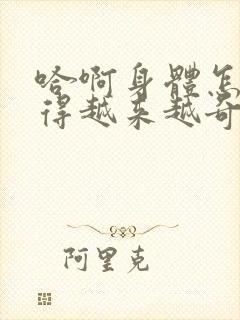 哈啊身體怎
得越来越奇
阿里克